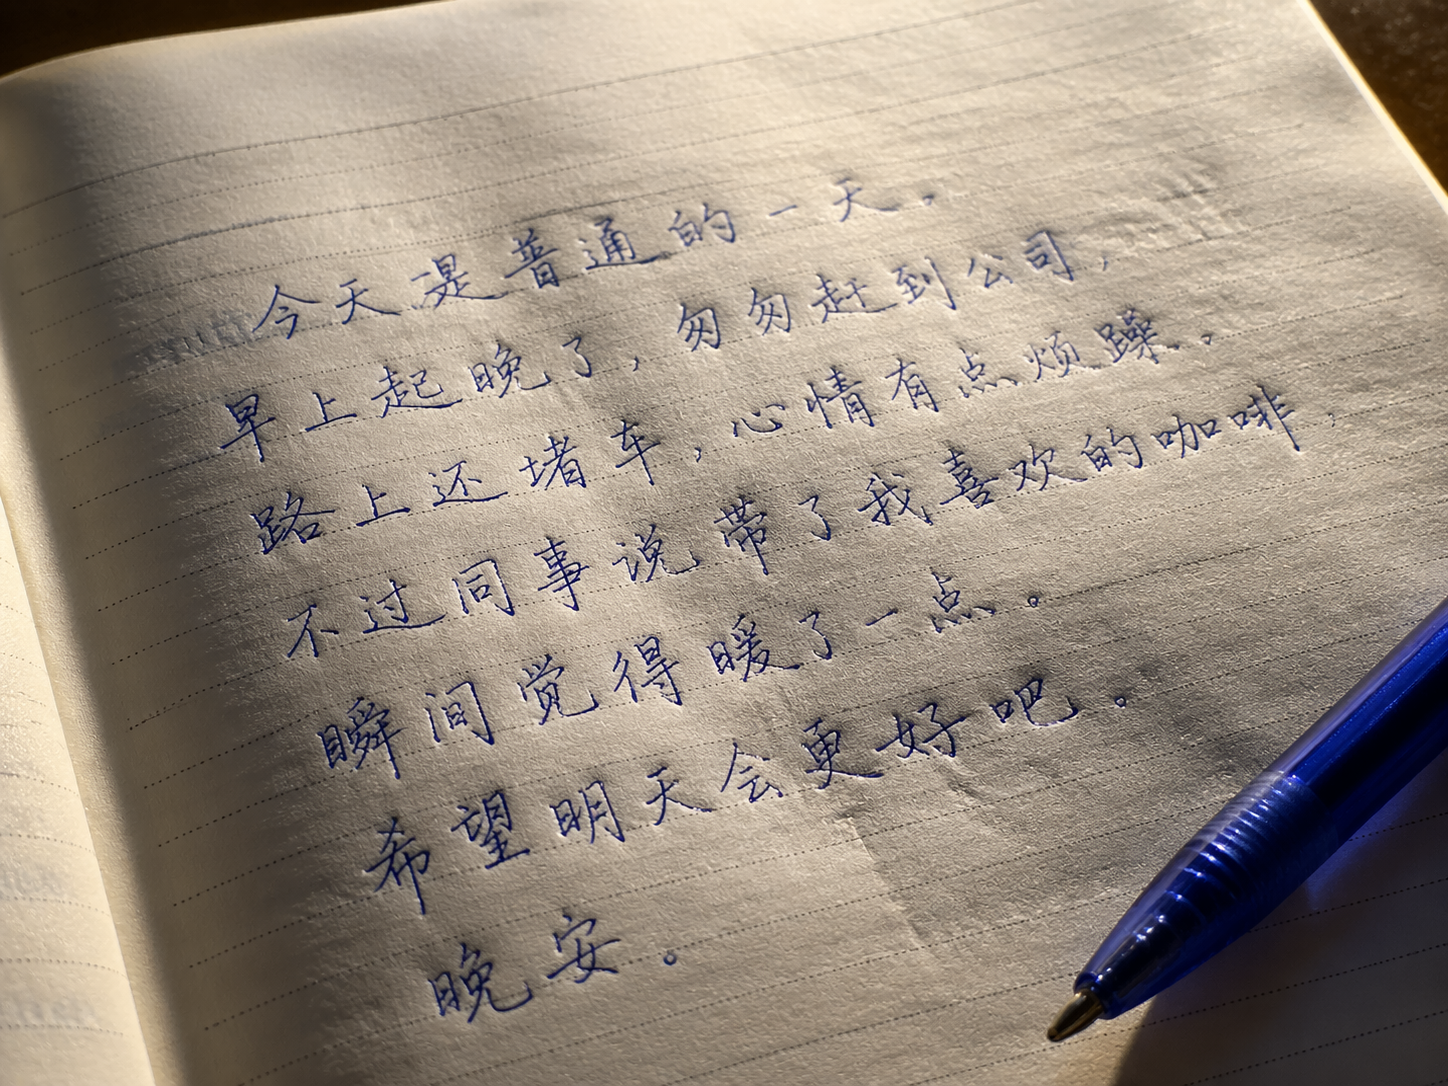 今天是普通的一天。
早上起晚了，匆匆赶到公司，
路上还堵车，心情有点烦躁。
不过同事说带了我喜欢的咖啡，
瞬间觉得暖了一点。
希望明天会更好吧。
晚安。